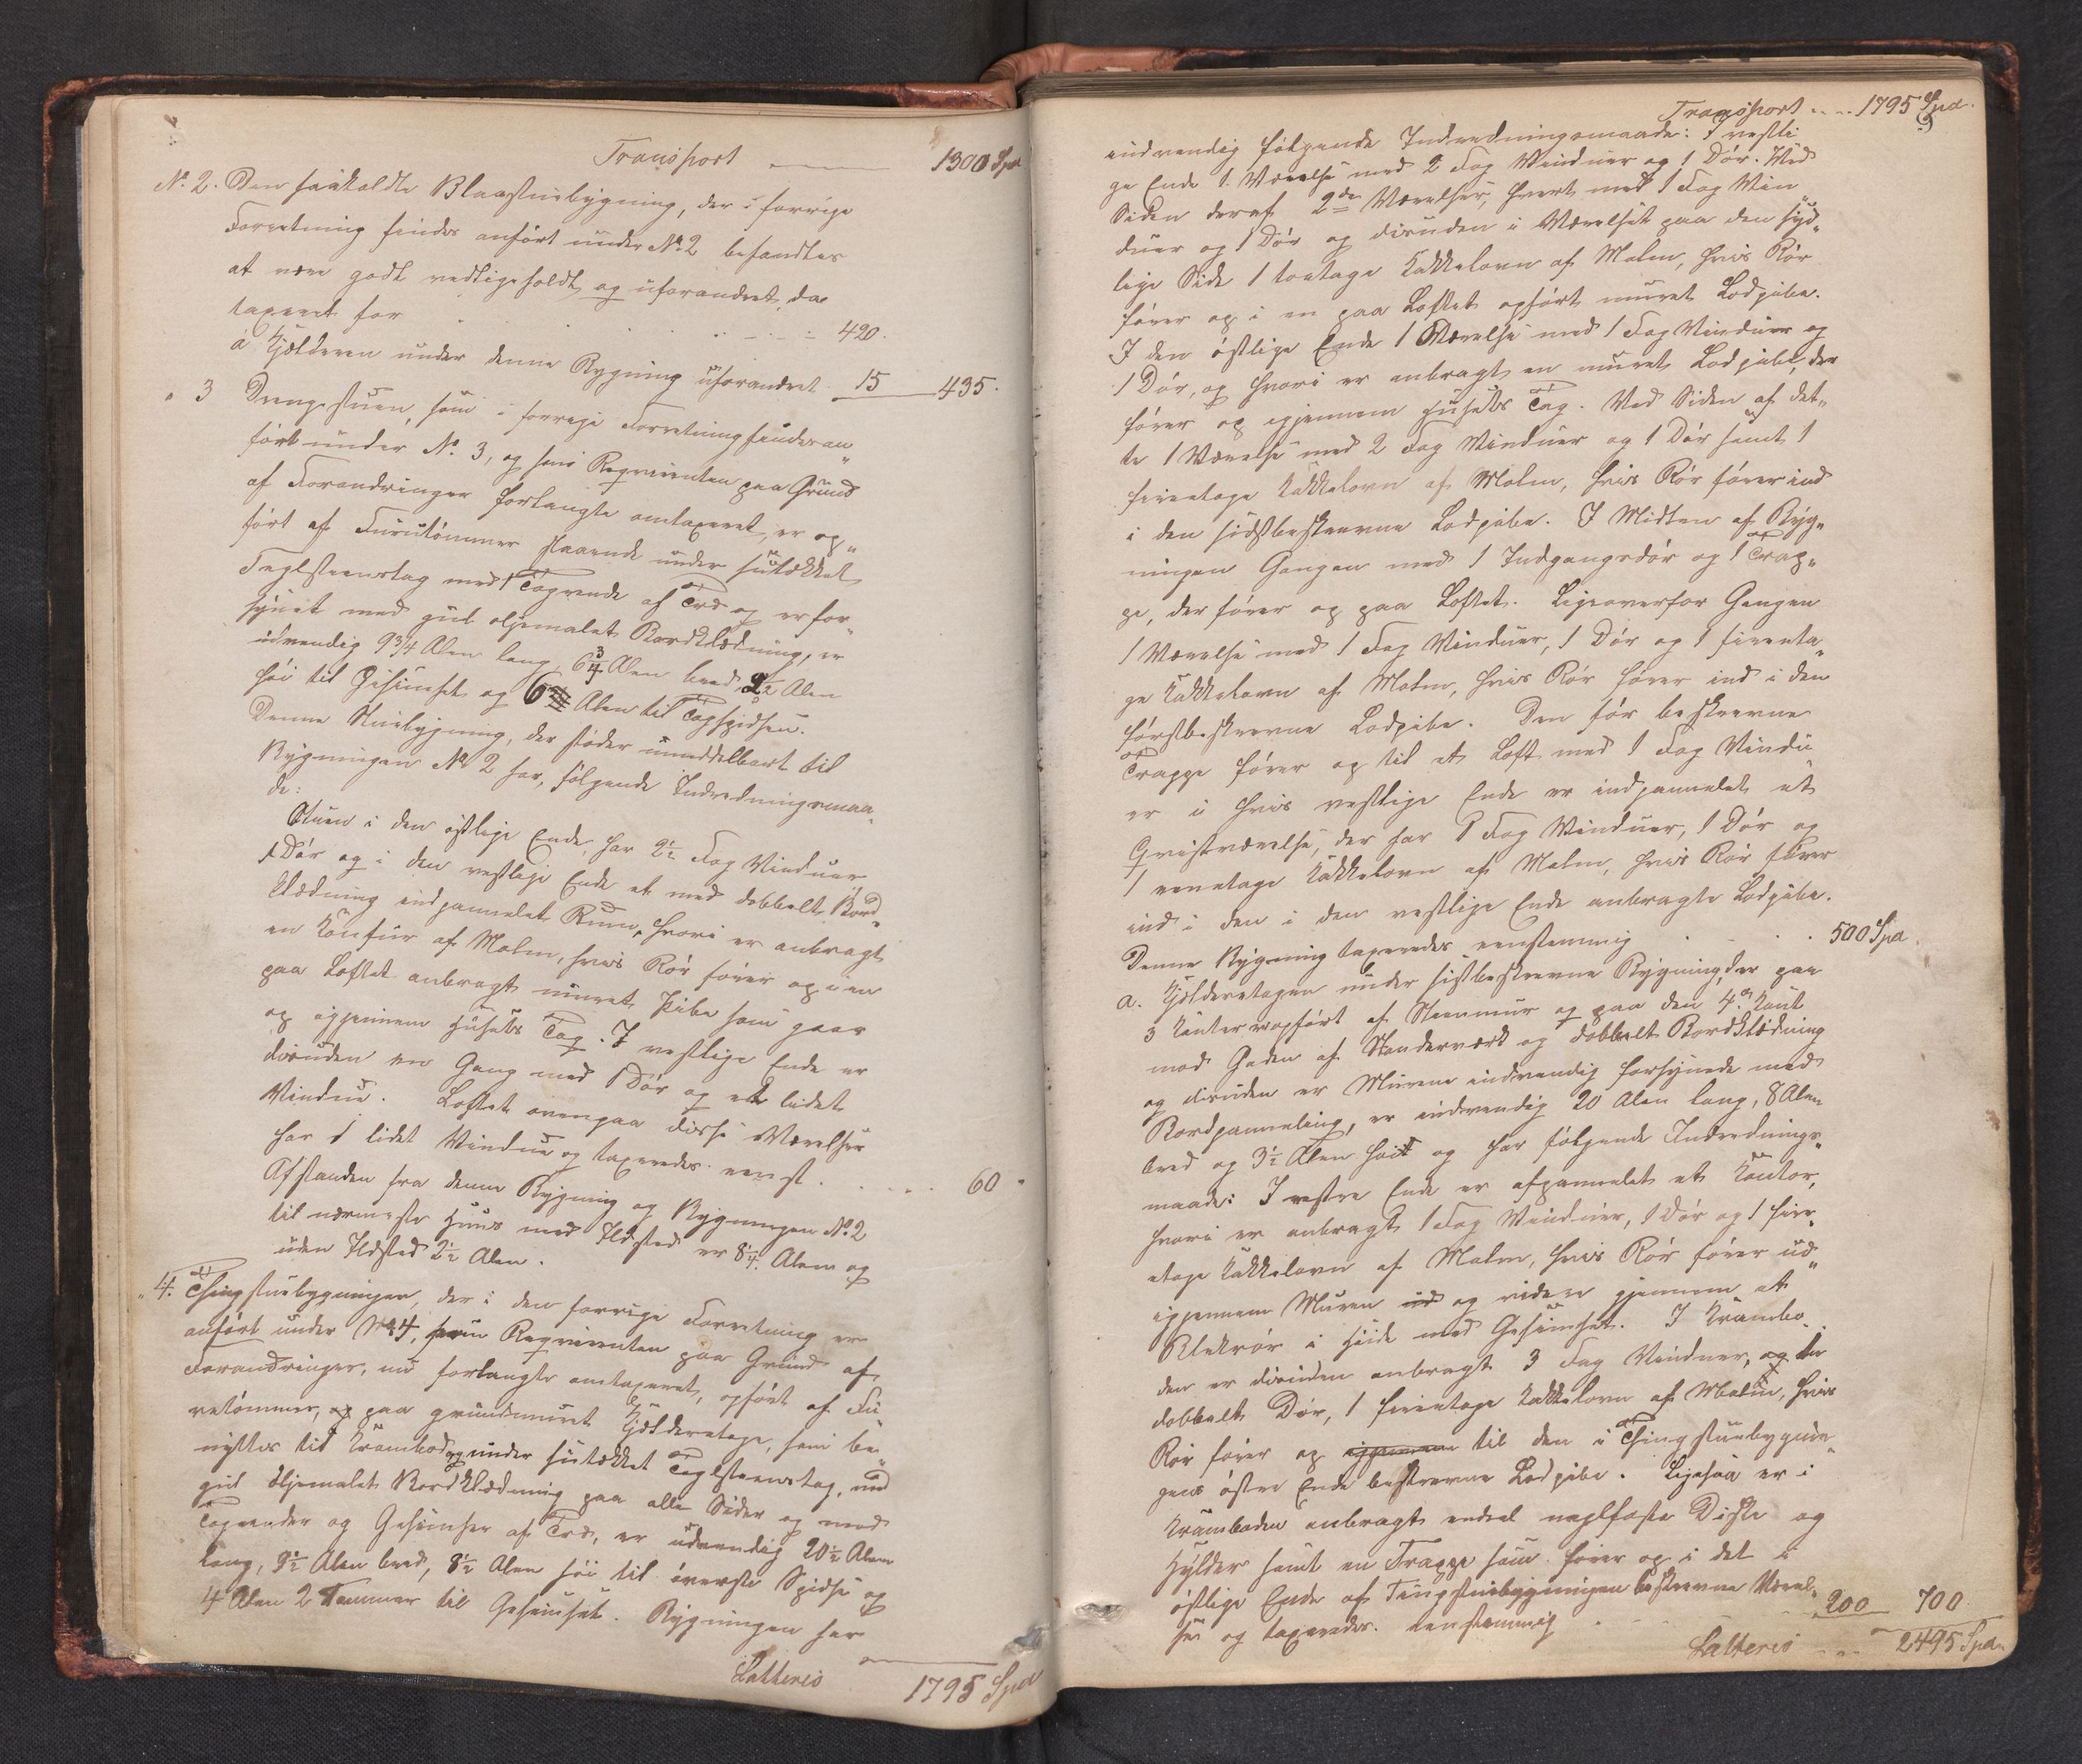 Transport 1300 Spd
No. 2. Den saakaldte Blaastuebygning, der i forrige
Forretning findes anført under No 2 befandtes
at være godt vedligeholdt og uforandret, da
taxeret for 420.
a Kjælderen under denne Bygning uforandret 15 435.
" 3 Drengestuen, som i forrige Forretning findes an„
ført under No. 3, og som Reqvirenten paa Grund
af Forandringer forlangte omtaxeret, er op„
ført af Furutømmer staaende under sutækket
Teglsteenstag med 1 Tagrende af Træ og er for„
synet med gul oljemalet Bordklædning, er
udvendig 9 3/4 Alen lang, 6 3/4 Alen bred, 2 1/2 Alen
høi til Gesimset og 6 Alen til Tagspidsen.
Denne Stuebygning, der støder umiddelbart til
Bygningen No 2 har, følgende Indredningsmaa„
de:
Stuen i den østlige Ende, har 2 1/2 Fag Vinduer
1 Dør og i den vestlige Ende et med dobbelt Bord„
klædning indpannelet Rum, hvori er anbragt
en Komfur af Malm, hvis Rør fører op i en
paa Loftet anbragt muret Pibe som gaar
op igjennem Husets Tag. I vestlige Ende er
desuden en Gang med 1 Dør og et lidet
Vindue. Loftet ovenpaa disse Værelser
har 1 lidet Vindue og taxeredes eenst. 60 "
Afstanden fra denne Bygning og Bygningen No. 2
til nærmeste Huus med Ildsted er 8 1/4 Alen og
uden Ildsted 2 1/2 Alen.
" 4. Thingstuebygningen, der i den forrige Forretning er
anført under No 4, som Reqvirenten paa Grund af
Forandringer, nu forlangte omtaxeret, opført af Fu
rutømmer, og paa grundmuret Kjælderetage, som be„
nyttes til Krambod og under sutækket Teglsteenstag, med
gul oljemalet Bordklædning paa alle Sider og med
Tagrender og Gesimser af Træ, er udvendig 20 1/2 Alen
lang, 9 1/2 Alen bred, 8 1/2 Alen høi til øverste Spidse og
4 Alen 2 Tommer til Gesimset. Bygningen har
Latteris 1795 Spd
Transport 1795 Spd.
indvendig følgende Indredningsmaade: I vestli
ge Ende 1 Værelse med 2 Fag Vinduer og 1 Dør. Ved
Siden deraf 2de Værelser, hvert med 1 Fag Vin„
duer og 1 Dør og desuden i Værelset paa den syd„
lige Side 1 toetages Kakkelovn af Malm, hvis Rør
fører op i en paa Loftet opført muret Lodpibe.
I den østlige Ende 1 Værelse med 1 Fag Vinduer og
1 Dør, og hvori er anbragt en muret Lodpibe, der
fører op igjennem Husets Tag. Ved Siden af det„
te 1 Værelse med 2 Fag Vinduer og 1 Dør samt 1
fireetages Kakkelovn af Malm, hvis Rør fører ind
i den sidstbeskrevne Lodpibe. I Midten af Byg„
ningen Gangen med 1 Indgangsdør og 1 Trap„
pe, der fører op paa Loftet. Ligeoverfor Gangen
1 Værelse med 1 Fag Vinduer, 1 Dør og 1 fireeta„
ges Kakkelovn af Malm, hvis Rør fører ind i den
førstbeskrevne Lodpibe. Den før beskrevne
Trappe fører op til et Loft med 1 Fag Vindu
er i hvis vestlige Ende er indpannelet et
Qvistværelse, der har 1 Fag Vinduer, 1 Dør og
1 eenetages Kakkelovn af Malm, hvis Rør fører
ind i den i den vestlige Ende anbragte Lodpibe.
Denne Bygning taxeredes eenstemmig 500 Spd.
a. Kjælderetagen under sistbeskrevne Bygning, der paa
3 Kanter er opført af Steenmur og paa den 4de Kant
mod Gaden af Standerværk og dobbelt Bordklædning
og desuden er Murene indvendig forsynede med
Bordpanneling, er indvendig 20 Alen lang, 8 Alen
bred og 3 1/2 Alen høit og har følgende Indrednings„
maade: I vestre Ende er afpannelet et Kontor,
hvori er anbragt 1 Fag Vinduer, 1 Dør og 1 fire„
etages Kakkelovn af Malm, hvis Rør fører ud„
igjennem Muren ud og videre gjennem et
Blekrør i Høide med Gesimset. I Krambo„
den er desuden anbragt 3 Fag Vinduer, og en
dobbelt Dør, 1 fireetages Kakkelovn af Malm, hvis
Rør fører op igjennem til den i Thingstuebygnin„
gens østre Ende beskrevne Lodpibe. Ligesaa er i
Kramboden anbragt endeel naglfaste Diske og
Hylder samt en Trappe som fører op i det i
østlige Ende af Tingstuebygningen beskrevne Værel„
se og taxeredes eenstemmig 200 700
Latteris 2495 Spd.